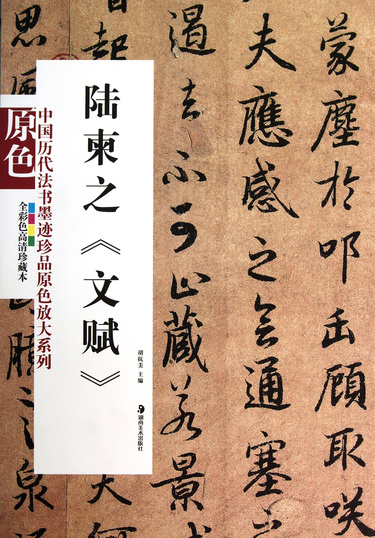 蒙塵於叩缶顧取咲
夫應感之會通塞之
遏去不可止藏若景
起
何
思風
泉
陆柬之《文赋》
胡抗美 主编
湖南美术出版社
中国历代法书墨迹珍品原色放大系列
原色
全彩色高清珍藏本